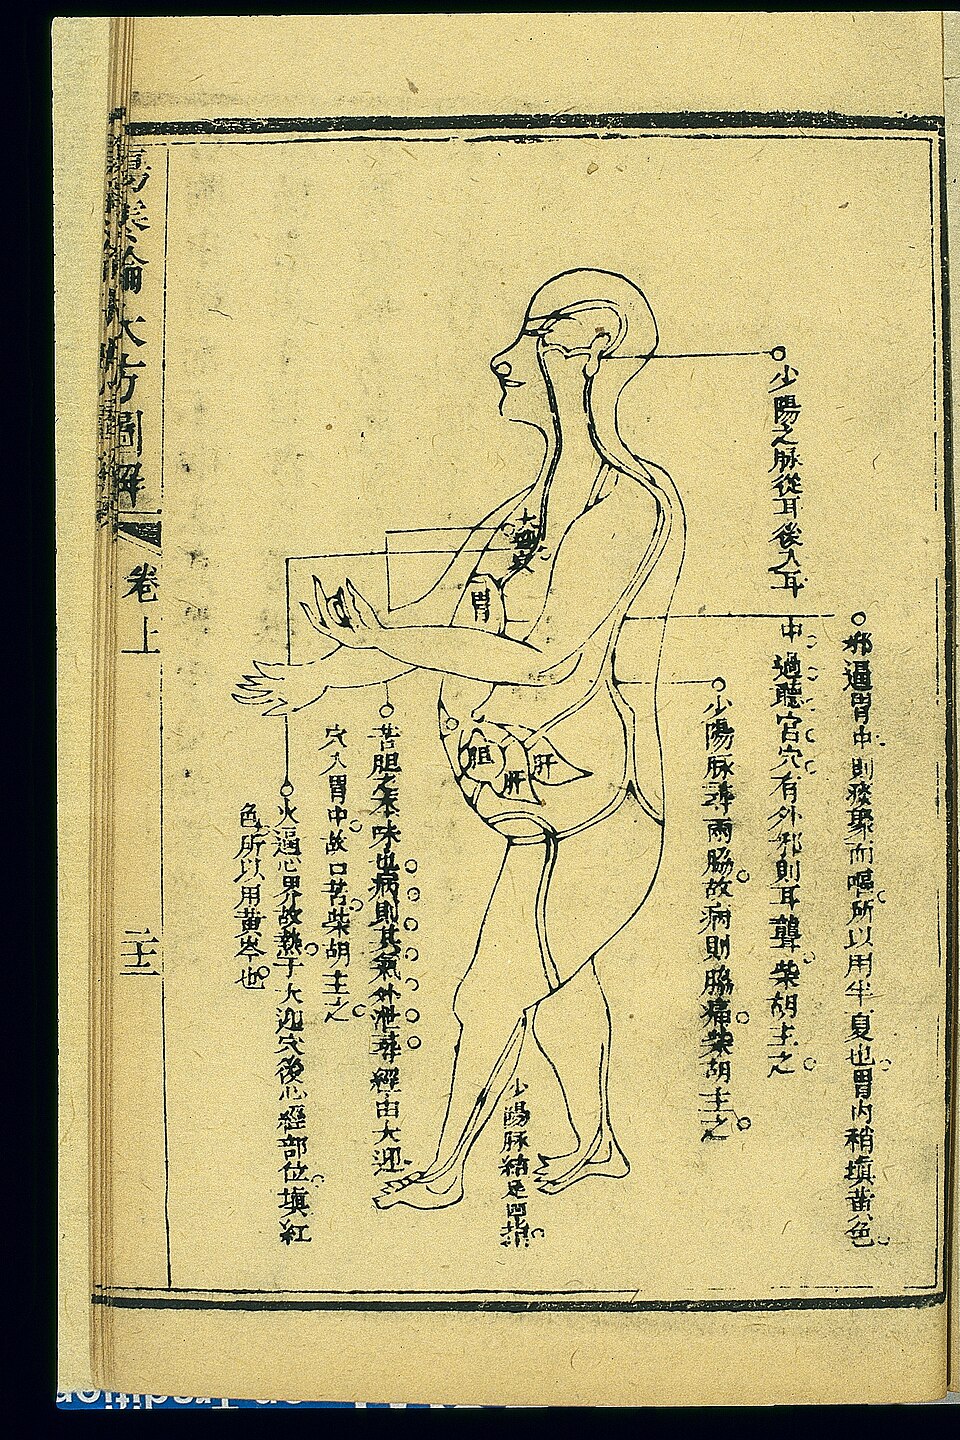 邪逼胃中則痰聚而嘔所以用半夏也胃內稍塡黃色
少陽之脉從耳後入耳
中過聽宮穴有外邪則耳聾柴胡主之
少陽脉尋兩脇故病則脇痛柴胡主之
大迎穴
胃
胆
肝
肝
少陽脉結足四指
苦胆之本味也病則其氣外泄尋經由大迎
穴入胃中故口苦柴胡主之
火逼心界故熱于大迎穴後心經部位塡紅
色所以用黃岑也
傷寒論大方圖解
卷上
二十二
on Tradition